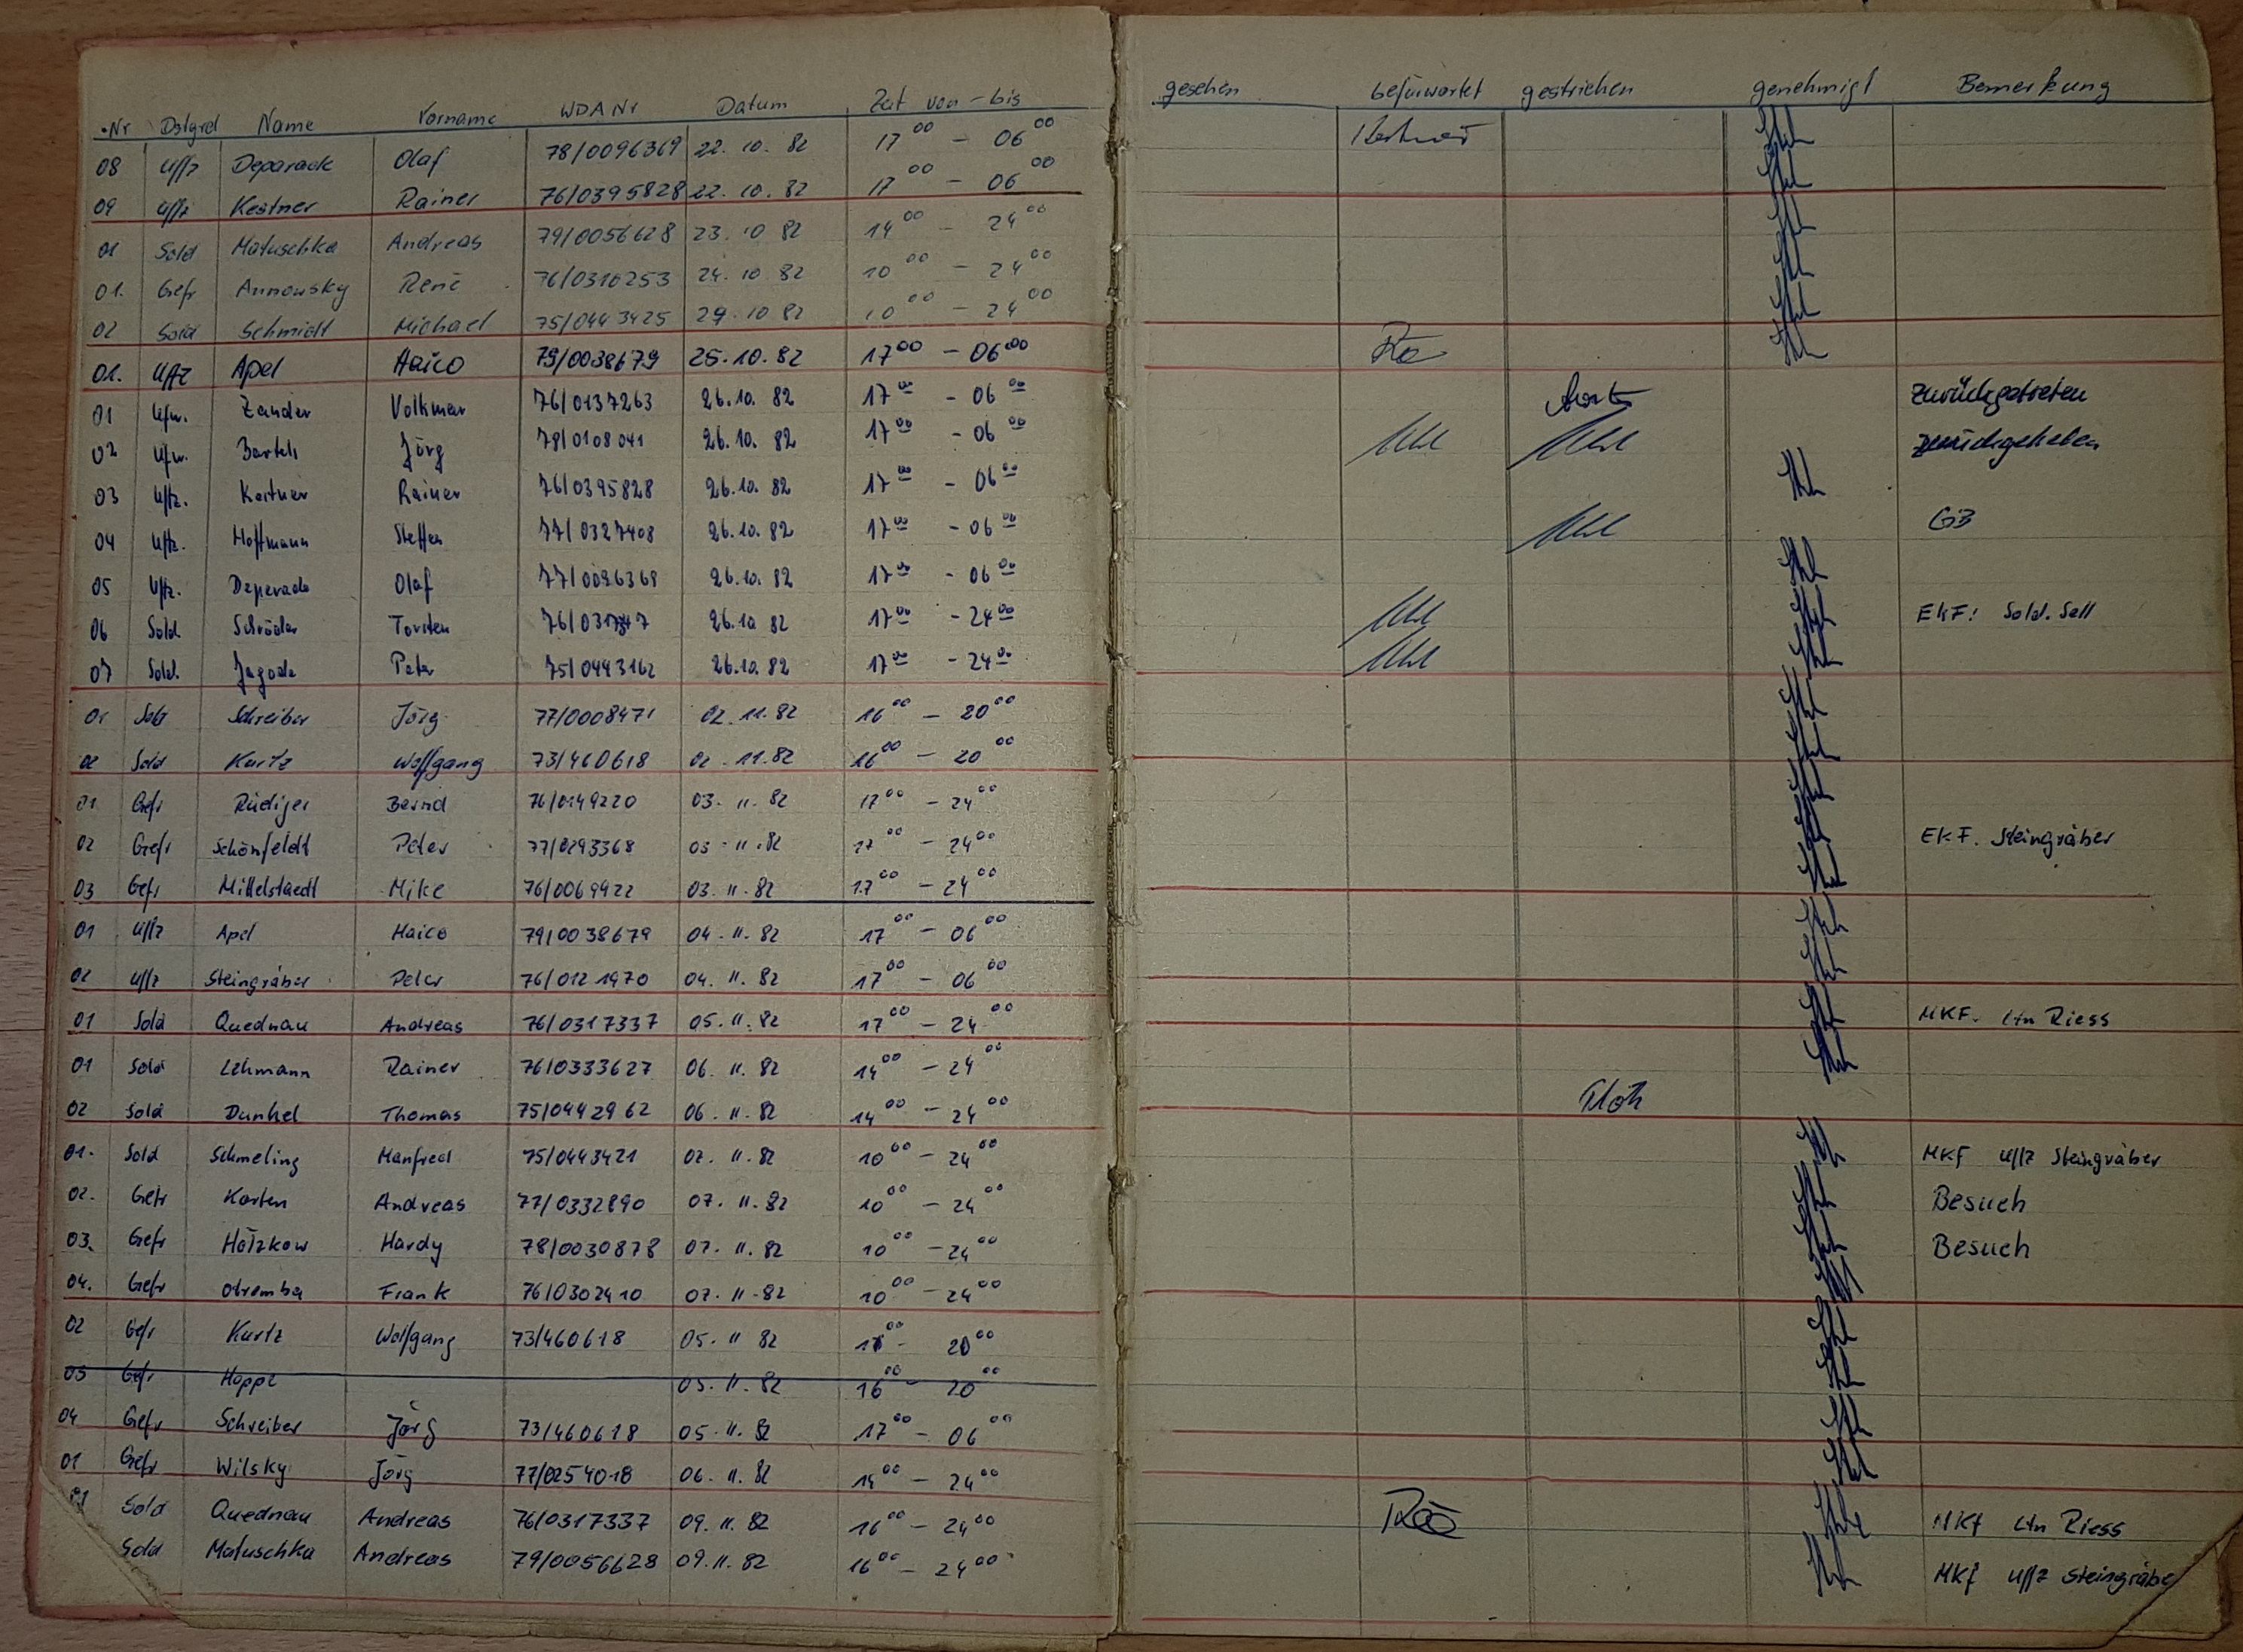 Nr Dstgrd Name Vorname WDA Nr Datum Zeit von - bis gesehen befürwortet gestrichen genehmigt Bemerkung
08 Uffz Deparade Olaf 78/0096369 22. 10. 82 17 00 - 06 00
09 Uffz Kestner Rainer 76/0395828 22. 10. 82 17 00 - 06 00
01 Sold Matuschka Andreas 79/0056628 23. 10 82 14 00 - 24 00
01. Gefr Annowsky René 76/0310253 24. 10 82 10 00 - 24 00
02 Sold Schmidt Michael 75/0443425 24. 10 82 10 00 - 24 00
01. Uffz Apel Haico 79/0038679 25. 10. 82 17 00 - 06 00
01 Ufw. Zander Volkmar 76/0137263 26. 10. 82 17 00 - 06 00 zurückgetreten
02 Ufw. Bartels Jörg 78/0108041 26. 10. 82 17 00 - 06 00 zurückgegeben
03 Uffz. Kestner Rainer 76/0395828 26. 10. 82 17 00 - 06 00
04 Uffz. Hoffmann Steffen 77/0327408 26. 10. 82 17 00 - 06 00 GB
05 Uffz. Deperade Olaf 77/0096369 26. 10. 82 17 00 - 06 00
06 Sold. Schröder Torsten 26. 10 82 17 00 - 24 00 EKF: Sold. Sell
07 Sold. Jagode Peter 75/0443162 26. 10. 82 17 00 - 24 00
01 Schreiber Jörg 77/0008471 02. 11. 82 16 00 - 20 00
02 Sold Kurtz Wolfgang 73/460618 02. 11. 82 16 00 - 20 00
01 Gefr Rüdiger Bernd 76/0149220 03. 11. 82 17 00 - 24 00
02 Gefr Schönfeldt Peter 77/0293368 03. 11. 82 17 00 - 24 00 EKF. Steingräber
03 Gefr Mittelstaedt Mike 76/0069922 03. 11. 82 17 00 - 24 00
01 Uffz Apel Haico 79/0038679 04. 11. 82 17 00 - 06 00
02 Uffz Steingräber Peter 76/0121970 04. 11. 82 17 00 - 06 00
01 Sold Quednau Andreas 76/0317337 05. 11. 82 17 00 - 24 00 MKF. Ltn Riess
01 Sold Lehmann Rainer 76/0333627 06. 11. 82 14 00 - 24 00
02 Sold Dunkel Thomas 75/0442962 06. 11. 82 14 00 - 24 00
01. Sold Schmeling Manfred 75/0443421 07. 11. 82 10 00 - 24 00 MKf Uffz Steingräber
02. Gefr Korten Andreas 77/0332890 07. 11. 82 10 00 - 24 00 Besuch
03. Gefr Holzkow Hardy 78/0030878 07. 11. 82 10 00 - 24 00 Besuch
04. Gefr Otremba Frank 76/0302410 07. 11. 82 10 00 - 24 00
02 Gefr Kurtz Wolfgang 73/460618 05. 11 82 00 - 20 00
03 Gefr Hoppe 05. 11. 82 16 00 - 20 00
04 Gefr Schreiber Jörg 73/460618 05. 11. 82 17 00 - 06 00
01 Gefr Wilsky Jörg 77/0254018 06. 11. 82 14 00 - 24 00
01 Sold Quednau Andreas 76/0317337 09. 11. 82 16 00 - 24 00 MKf Ltn Riess
Sold Matuschka Andreas 79/0056628 09. 11. 82 16 00 - 24 00 MKf Uffz Steingräbe